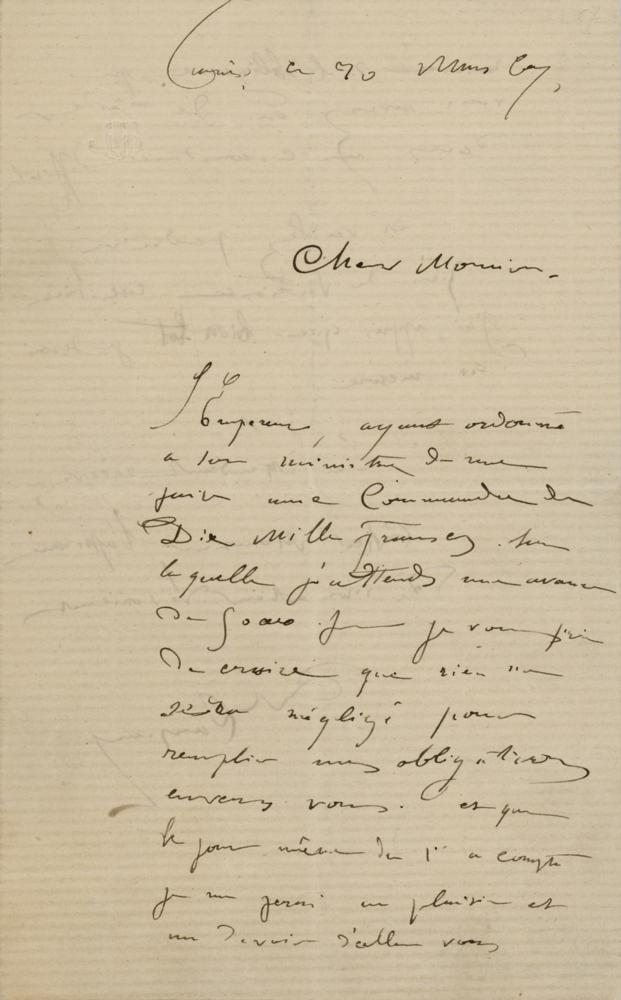 ce 30 Mars 69,
Cher Monsieur.
L'Empereur, ayant ordonné
a son ministre de me
faire une Commande de
Dix Mille Francs, sur
laquelle j'attends une avance
De 5000 f je vous prie
De croire que rien ne
sera négligé pour
remplir mes obligations
envers vous. et que
le jour même du 1er a compte
je me ferai un plaisir et
un Devoir d'aller vous